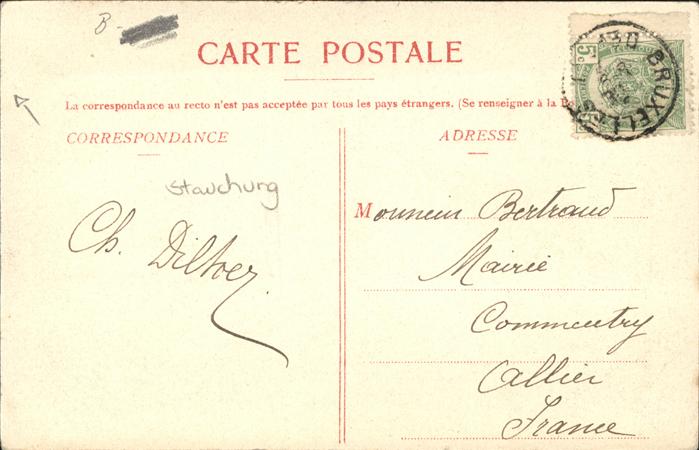 B-
CARTE POSTALE
La correspondance au recto n'est pas acceptée par tous les pays étrangers. (Se renseigner à la Po
CORRESPONDANCE
ADRESSE
Stauchung
Ch. Diltoer
Monsieur Bertrand
Mairie
Commentry
Allier
France
5c
BRUXELLES